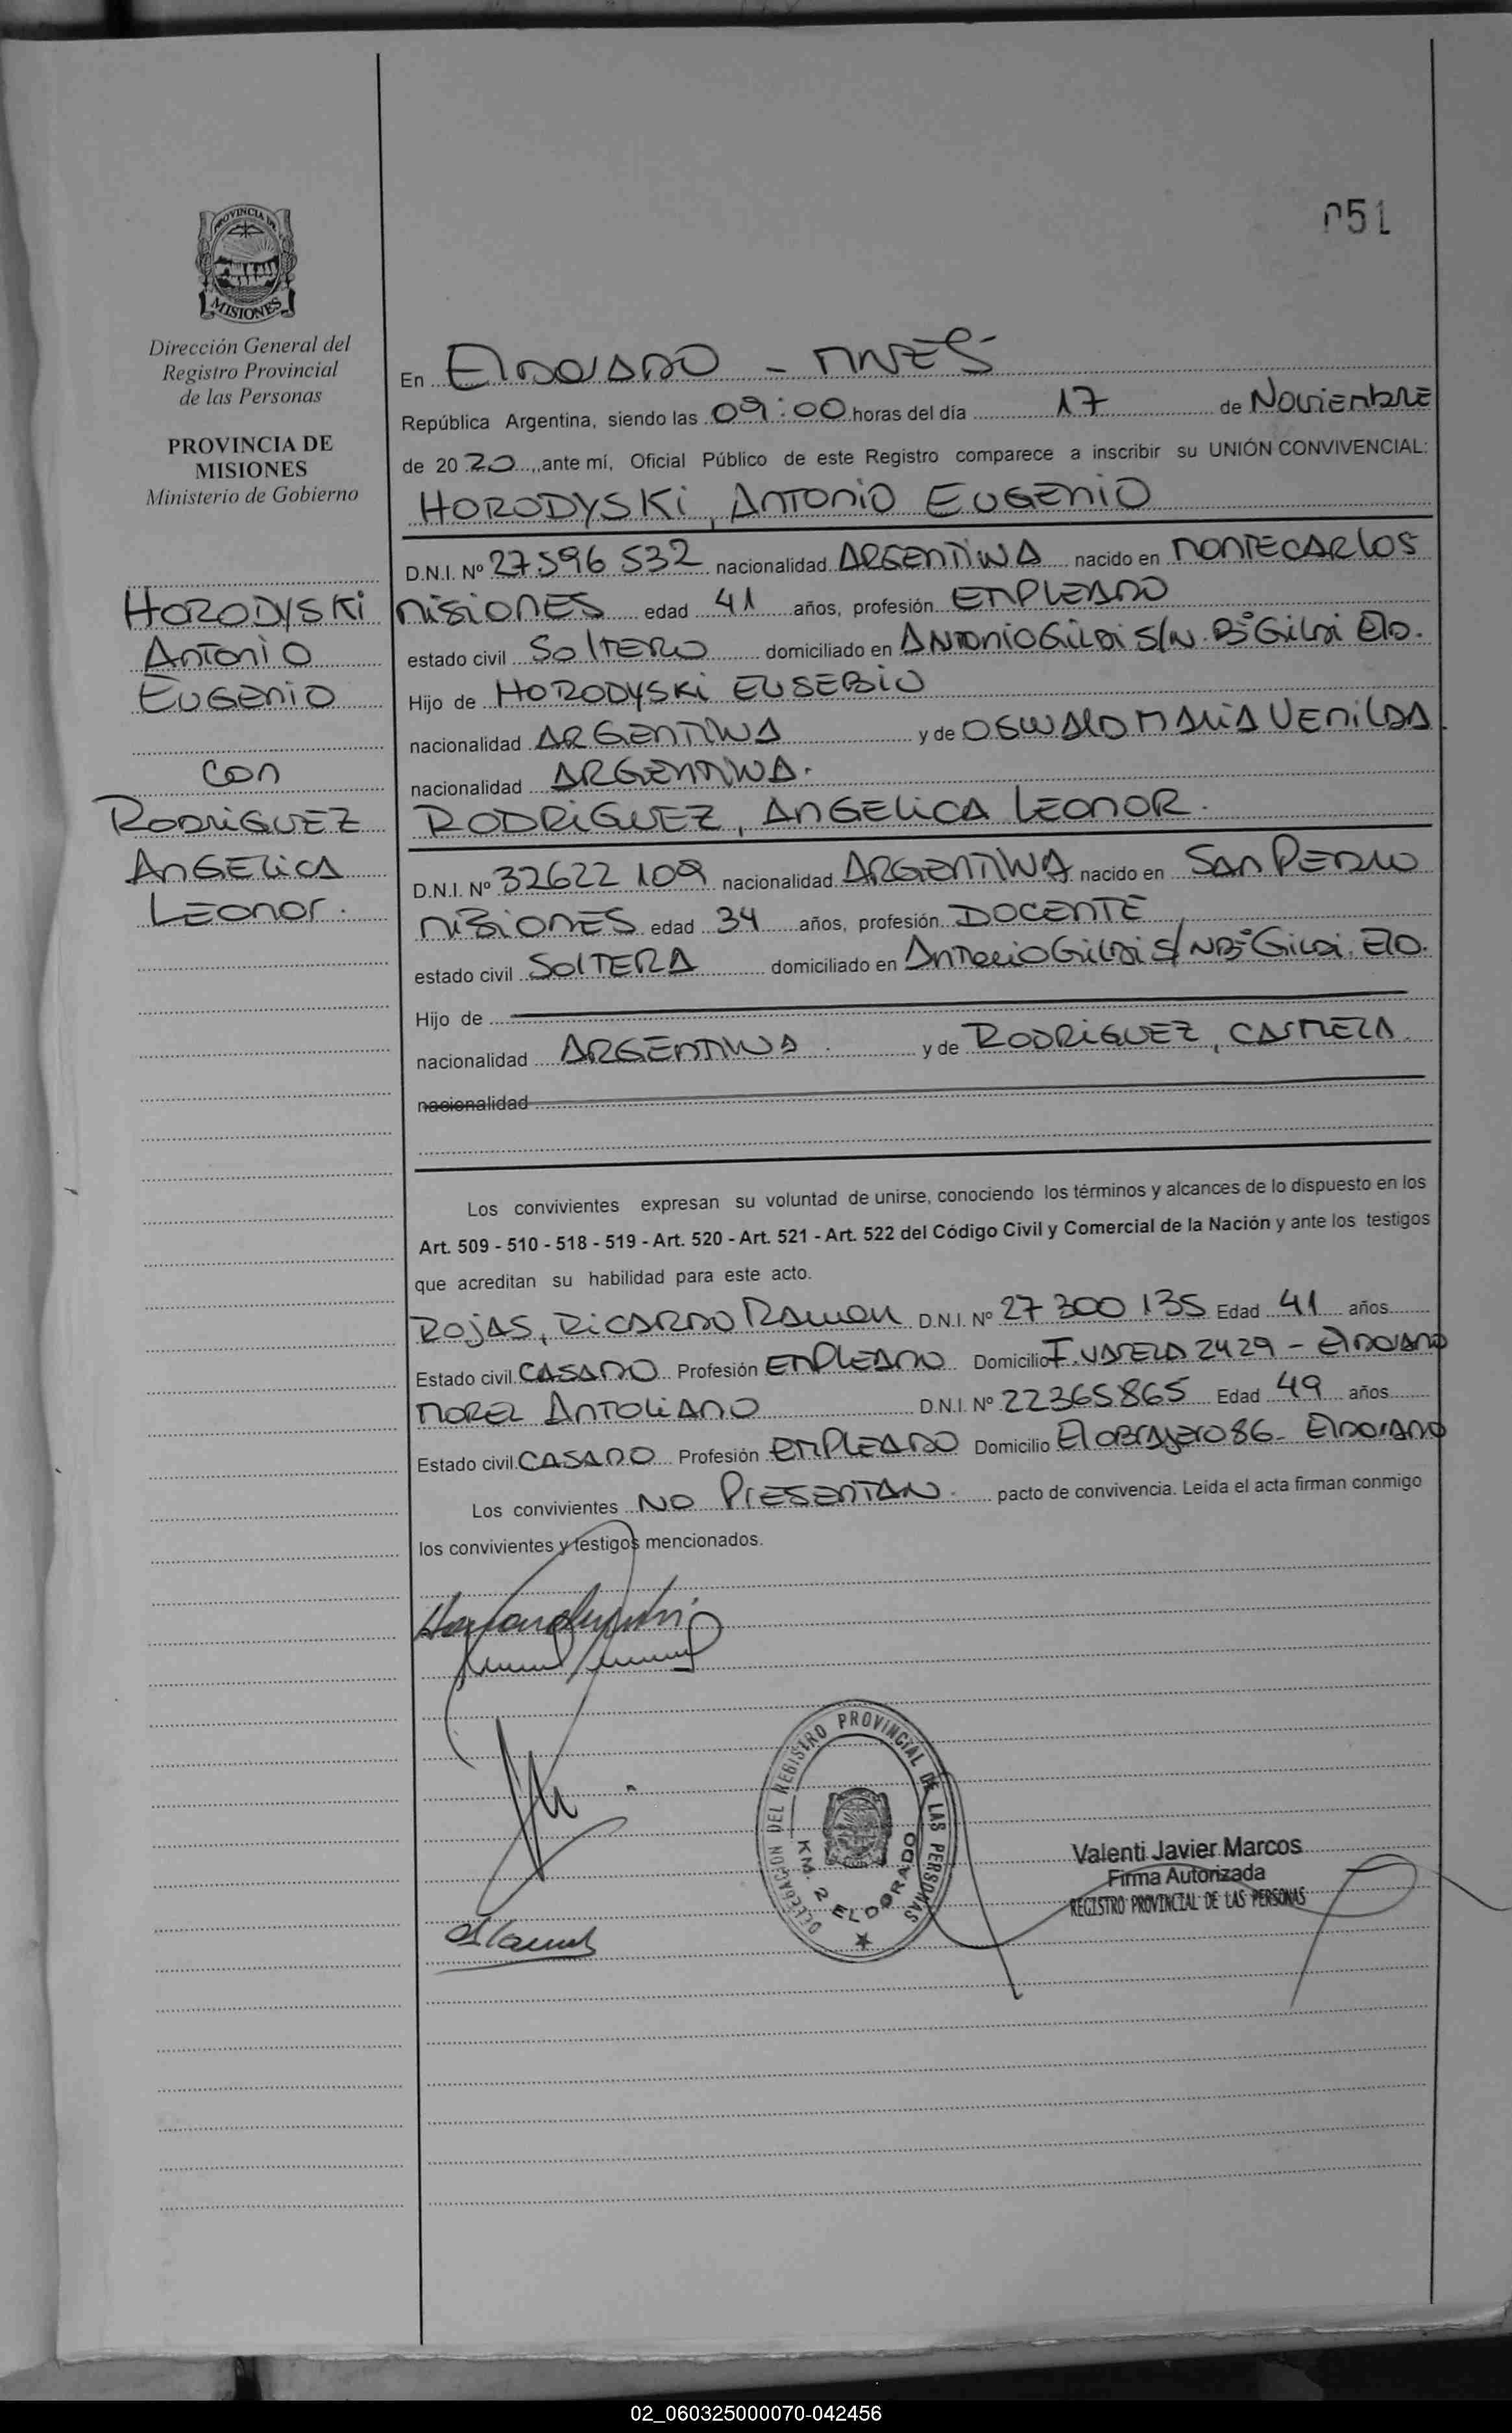 051
PROVINCIA DE
MISIONES
Dirección General del
Registro Provincial
de las Personas
PROVINCIA DE
MISIONES
Ministerio de Gobierno
HORODYSKI
ANTONIO
EUGENIO
CON
RODRIGUEZ
ANGELICA
LEONOR.
En ELDORADO - MNES
República Argentina, siendo las 09:00 horas del día 17 de Noviembre
de 2020, ante mí, Oficial Público de este Registro comparece a inscribir su UNIÓN CONVIVENCIAL:
HORODYSKI, ANTONIO EUGENIO
D.N.I. Nº 27.596 532 nacionalidad ARGENTINA nacido en MONTECARLOS
MISIONES edad 41 años, profesión EMPLEADO
estado civil SOLTERO domiciliado en ANTONIO GILDI S/N. Bº GILDI ELD.
Hijo de HORODYSKI EUSEBIO
nacionalidad ARGENTINA y de OSWALD MARIA VENILDA
nacionalidad ARGENTINA.
RODRIGUEZ, ANGELICA LEONOR.
D.N.I. Nº 32622 109 nacionalidad ARGENTINA nacido en SAN PEDRO
MISIONES edad 34 años, profesión DOCENTE
estado civil SOLTERA domiciliado en ANTONIO GILDI S/N Bº GILDI. ELD.
Hijo de
nacionalidad ARGENTINA. y de RODRIGUEZ, CARMEZA.
nacionalidad
Los convivientes expresan su voluntad de unirse, conociendo los términos y alcances de lo dispuesto en los
Art. 509 - 510 - 518 - 519 - Art. 520 - Art. 521 - Art. 522 del Código Civil y Comercial de la Nación y ante los testigos
que acreditan su habilidad para este acto.
ROJAS, RICARDO RAMON D.N.I. Nº 27 300 135 Edad 41 años
Estado civil CASADO Profesión EMPLEADO Domicilio F. VARELA 2429 - ELDORADO
MOREL ANTOLIANO D.N.I. Nº 22365865 Edad 49 años
Estado civil CASADO Profesión EMPLEADO Domicilio El OBRAJERO 86- ELDORADO
Los convivientes NO PRESENTAN. pacto de convivencia. Leída el acta firman conmigo
los convivientes y testigos mencionados.
DELEGACION DEL REGISTRO PROVINCIAL DE LAS PERSONAS
KM. 2 ELDORADO
Valenti Javier Marcos
Firma Autorizada
REGISTRO PROVINCIAL DE LAS PERSONAS
02_060325000070-042456